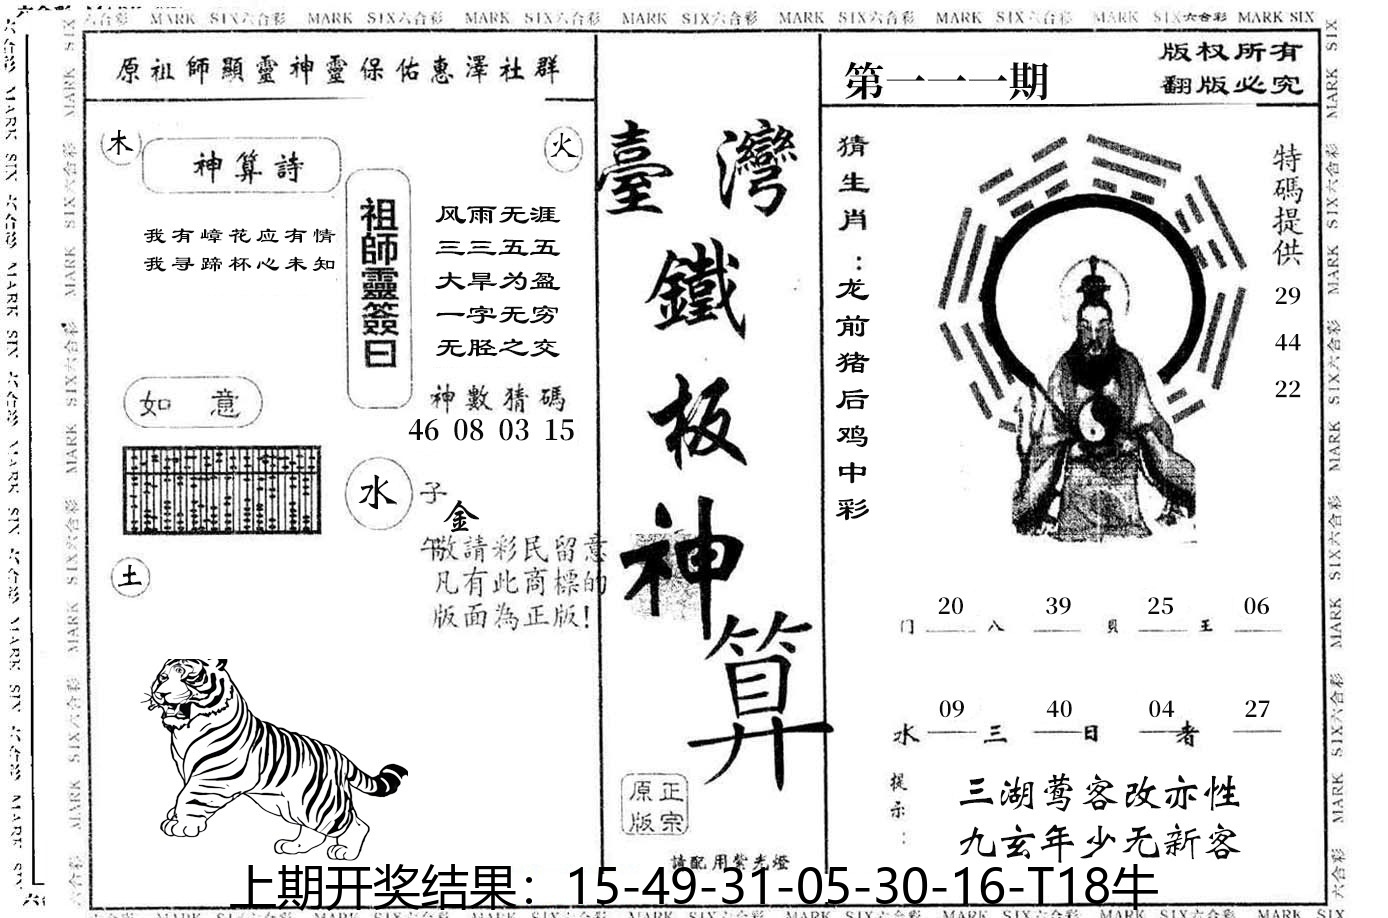 MARK SIX六合彩 MARK SIX六合彩 MARK SIX六合彩 MARK SIX六合彩 MARK SIX六合彩 MARK SIX六合彩 MARK SIX六合彩 MARK SIX
原祖師顯靈神靈保佑惠澤社群
木
火
神算詩
我有嶂花应有情
我寻蹄杯心未知
祖師靈簽曰
风雨无涯
三三五五
大旱为盈
一字无穷
无胫之交
神數猜碼
46 08 03 15
如 意
水
子
金
午
土
敬請彩民留意
凡有此商標的
版面為正版!
臺灣
鐵
板
神
算
原正
版宗
請配用紫光燈
第一一一期
版权所有
翻版必究
猜生肖:龙前猪后鸡中彩
特碼提供
29
44
22
20 39 25 06
门 八 貝 王
09 40 04 27
水 三 日 者
提示:
三湖莺客改亦性
九玄年少无新客
上期开奖结果：15-49-31-05-30-16-T18牛